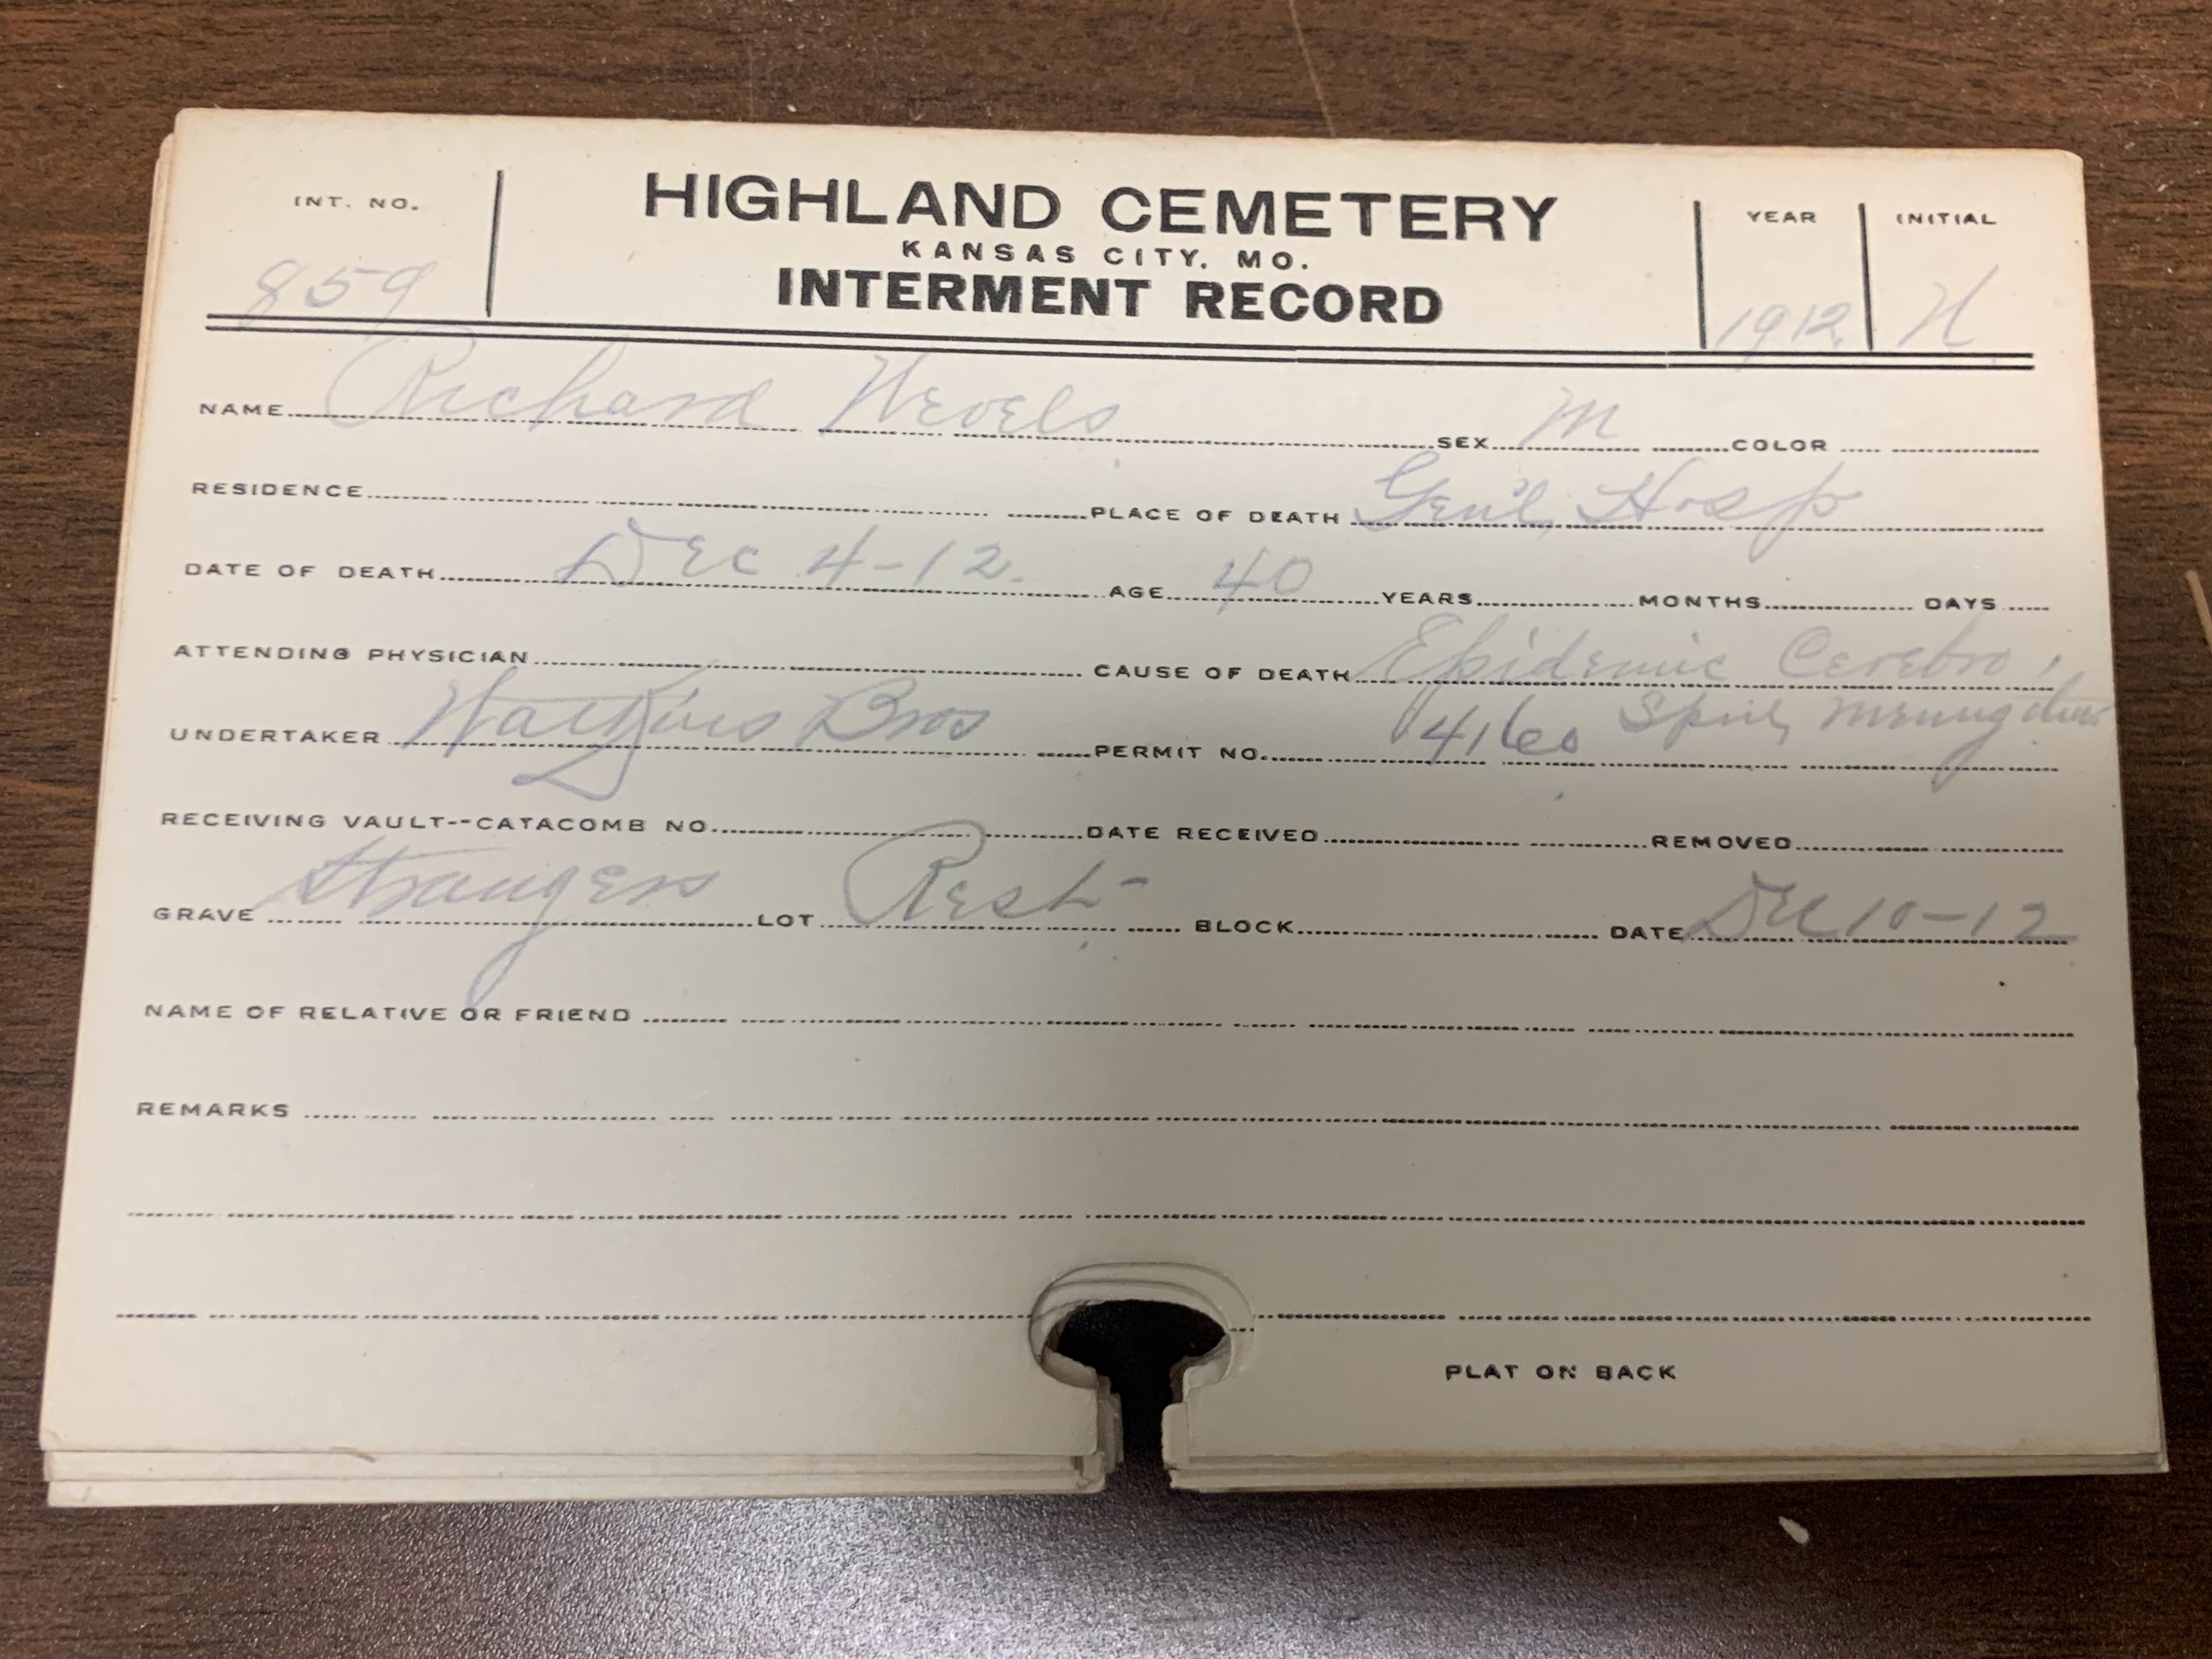 INT. NO.
859
HIGHLAND CEMETERY
KANSAS CITY, MO.
INTERMENT RECORD
YEAR
1912
INITIAL
NAME Richard SEX M COLOR
RESIDENCE PLACE OF DEATH Gen'l Hosp
DATE OF DEATH Dec 4-12. AGE 40 YEARS MONTHS DAYS
ATTENDING PHYSICIAN CAUSE OF DEATH Epidemic Cerebro
UNDERTAKER Watkins Bros PERMIT NO.
RECEIVING VAULT--CATACOMB NO. DATE RECEIVED REMOVED
GRAVE Strangers LOT Rest BLOCK DATE Dec 10-12
NAME OF RELATIVE OR FRIEND
REMARKS
PLAT ON BACK